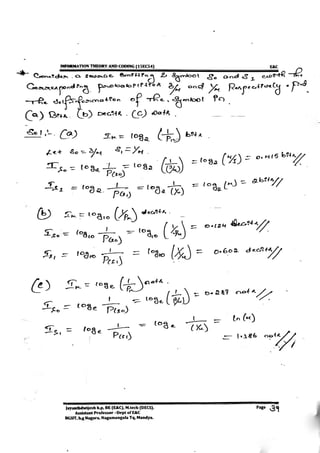 INFORMATION THEORY AND CODING (15EC54) E&C
* Consider a source emitting 2 Symbol S₀ and S₁ with the
Corresponding probabilities 3/4 and 1/4 Respectively. Find
The self information of the symbol in
(a) Bits (b) Decits. (c) nats
Sol:- (a) Iₙ = log₂ (1/Pₙ) bits.
Let S₀ = 3/4 S₁ = 1/4
I_S₀ = log₂ 1/P(S₀) = log₂ (1/(3/4)) = log₂ (4/3) = 0.415 bits//
I_S₁ = log₂ 1/P(S₁) = log₂ 1/(1/4) = log₂ (4) = 2 bits//
(b) Iₙ = log₁₀ (1/Pₙ) decits.
I_S₀ = log₁₀ 1/P(S₀) = log₁₀ (4/3) = 0.124 decits//
I_S₁ = log₁₀ 1/P(S₁) = log₁₀ (1/(1/4)) = 0.602 decits//
(c) Iₙ = logₑ (1/Pₙ) nats.
I_S₀ = logₑ 1/P(S₀) = logₑ (1/(3/4)) = 0.287 nats//
I_S₁ = logₑ 1/P(S₁) = logₑ 1/(1/4) = ln (4)
= 1.386 nats//
Page 34
Assistant Professor - Dept of E&C
BGSIT, b.g Nagara, Nagamangala Tq, Mandya.